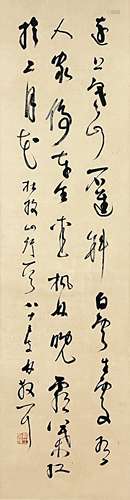 遠上寒山石逕斜白雲生處有
人家停車坐愛楓林晚霜葉紅
於二月花 杜牧山行 八十 散耳